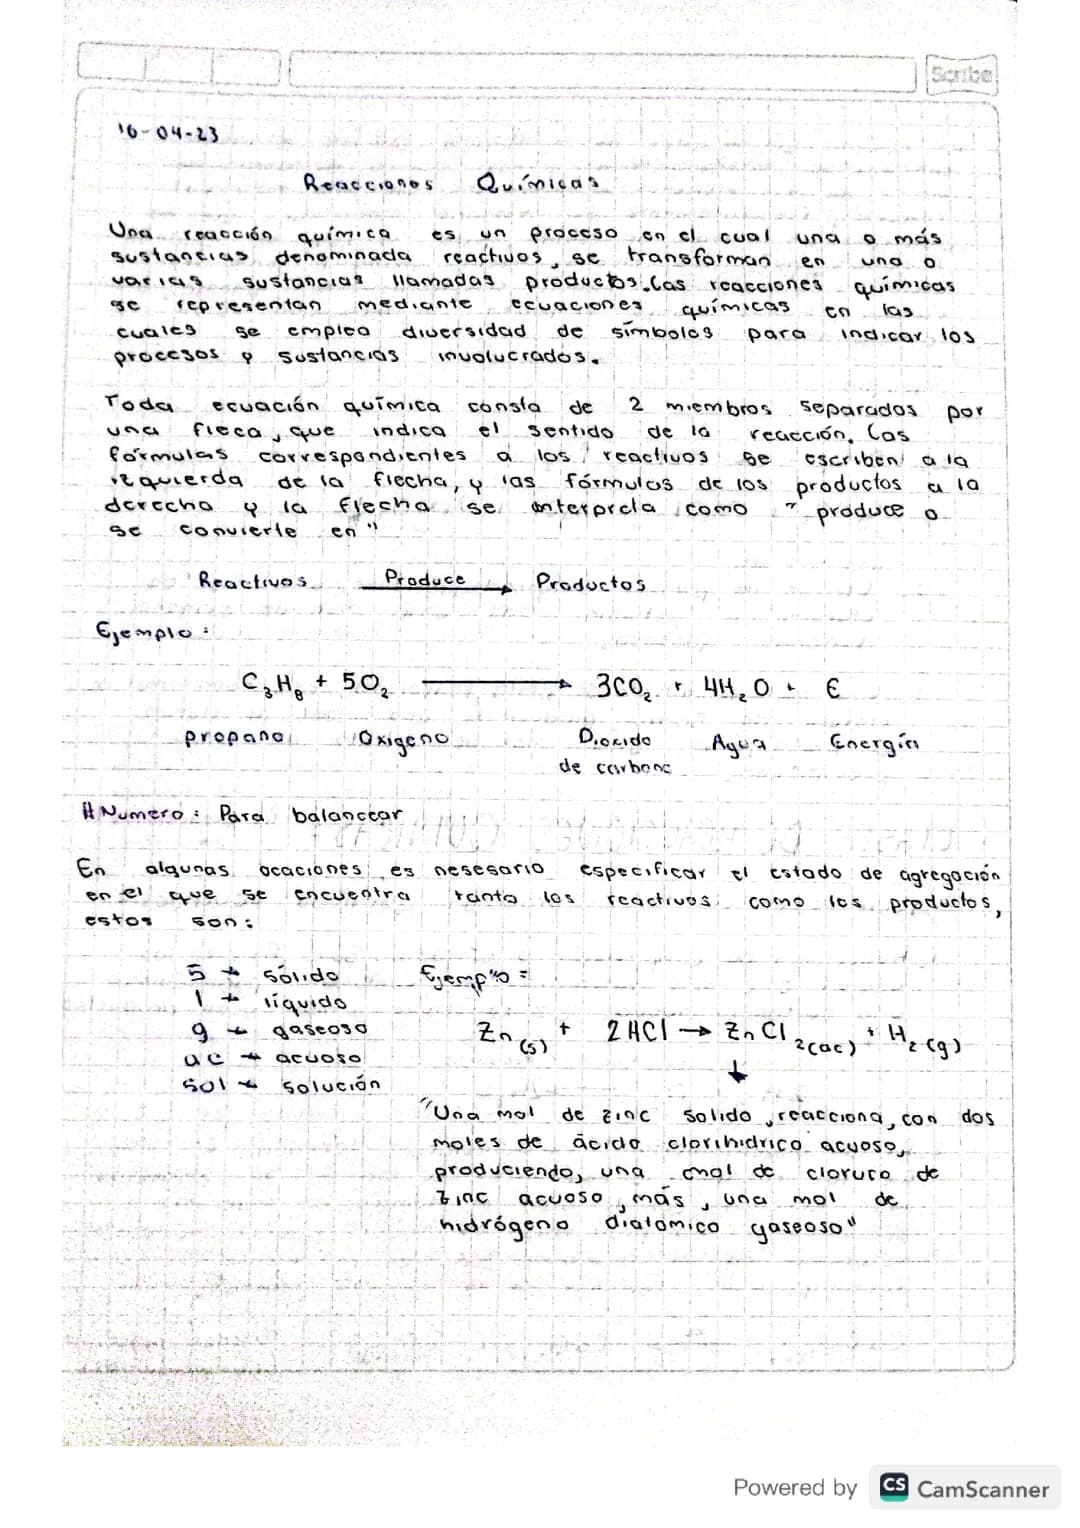 Scribe
16-04-23
Reacciones Químicas
Una reacción química es un proceso en el cual una o más
sustancias denominada reactivos, se transforman en una o
varias sustancias llamadas productos. Las reacciones químicas
se representan mediante ecuaciones químicas en las
cuales se emplea diversidad de símbolos para indicar los
procesos y sustancias involucrados.
Toda ecuación química consta de 2 miembros separados por
una fleca, que indica el sentido de la reacción. Las
fórmulas correspondientes a los reactivos se escriben a la
izquierda de la flecha, y las fórmulas de los productos a la
derecha y la flecha se interpreta como "produce o
se convierte en"
Reactivos Produce → Productos
Ejemplo:
C₃H₈ + 5O₂ → 3CO₂ + 4H₂O + E
propano Oxigeno Dioxido Agua Energía
de carbono
# Numero: Para balancear
En algunas ocaciones es nesesario especificar el estado de agregación
en el que se encuentra tanto los reactivos como los productos,
estos son:
s → sólido Ejemplo:
l → líquido
g → gaseoso Zn (s) + 2HCl → ZnCl 2(ac) + H₂(g)
ac → acuoso ↓
sol → solución
"Una mol de zinc solido, reacciona, con dos
moles de ácido clorihidrico acuoso,
produciendo, una mol de cloruro de
zinc acuoso, más, una mol de
hidrógeno diatomico gaseoso"
Powered by CS CamScanner